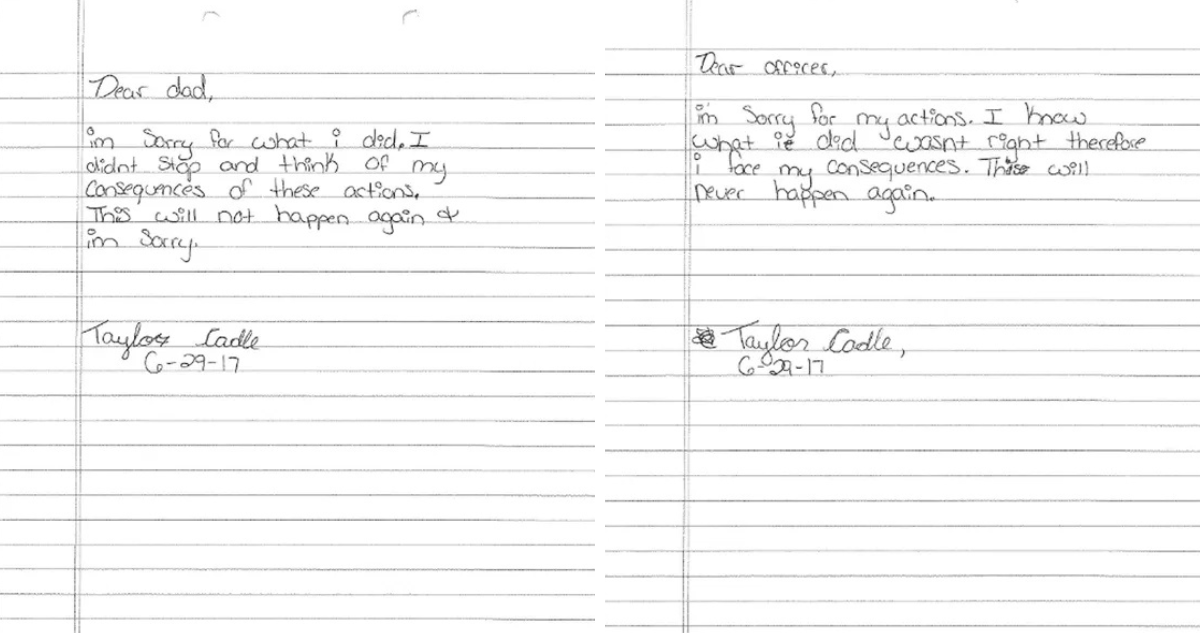 Dear dad,
im Sorry for what i did. I
didnt stop and think of my
Consequences of these actions.
This will not happen again &
im Sorry.
Taylor Cadle
6-29-17
Dear officer,
im Sorry for my actions. I know
what i did wasnt right therefore
i face my consequences. This will
never happen again.
Taylor Cadle,
6-29-17